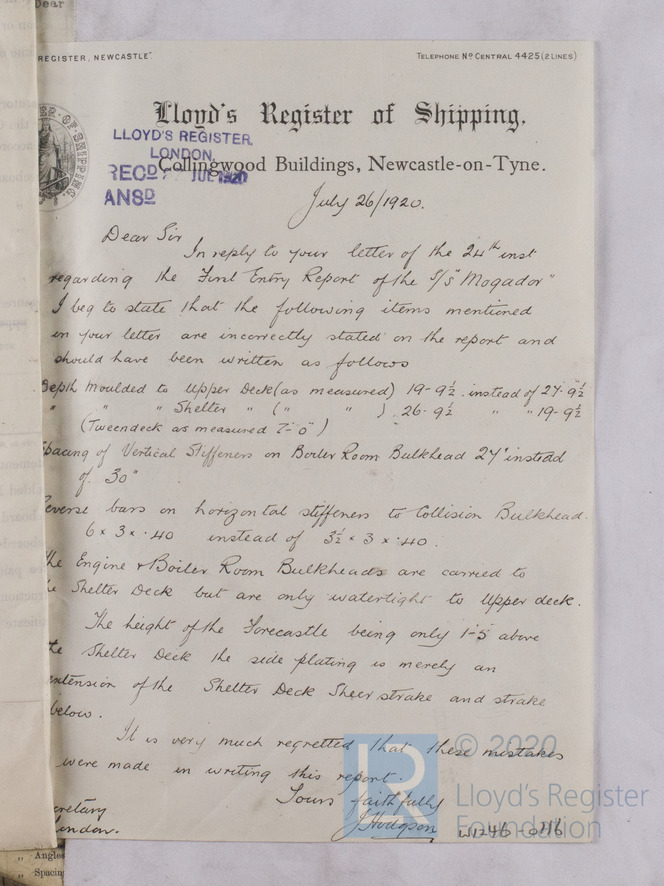 Dear
REGISTER, NEWCASTLE"
TELEPHONE No CENTRAL 4425 (2 LINES)
Lloyd's Register of Shipping.
LLOYD'S REGISTER,
LONDON,
Collingwood Buildings, Newcastle-on-Tyne.
RECD JUL 1920
ANSD
July 26/1920.
Dear Sir
In reply to your letter of the 24th inst
regarding the First Entry Report of the S/S "Mogador"
I beg to state that the following items mentioned
in your letter are incorrectly stated on the report and
should have been written as follows
Depth Moulded to Upper Deck (as measured) 19-9½ instead of 27-9½
" " " Shelter " ( " " ) 26-9½ " " 19-9½
(Tweendeck as measured 7'-0")
Spacing of Vertical Stiffeners on Boiler Room Bulkhead 24" instead
of 30"
everse bars on horizontal stiffeners to Collision Bulkhead.
6 x 3 x .40 instead of 3½ x 3 x .40.
he Engine & Boiler Room Bulkheads are carried to
e Shelter Deck but are only watertight to Upper deck.
The height of the Forecastle being only 1-5 above
the Shelter Deck the side plating is merely an
extension of the Shelter Deck Sheerstrake and strake
below.
It is very much regretted that these mistakes
were made in writing this report.
Yours faithfully
J Hodgson
ecretary
London.
W1246-0116
© 2020
LR
Lloyd's Register
Foundation
" Angles
" Spacing